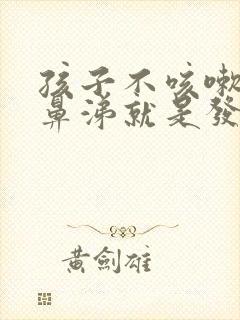 孩子不咳嗽
鼻涕就是發
黃劍雄